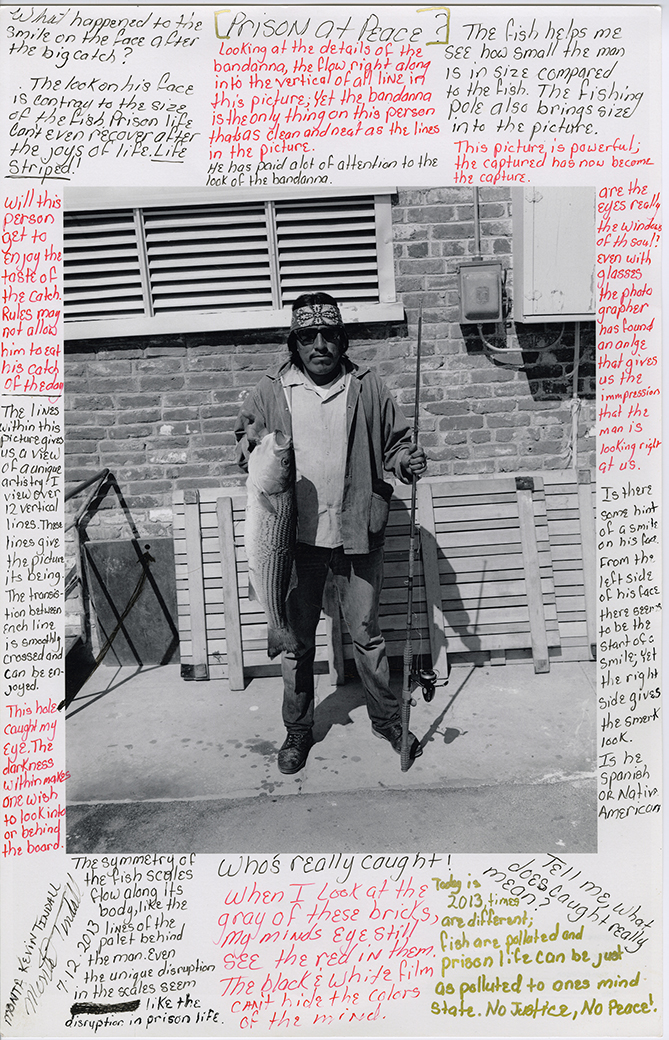 What happened to the
smile on the face after
the big catch?
. The look on his face
is contray to the size
of the fish. Prison life
Cant even recover after
the joys of life. Life
Striped!
[Prison at Peace?]
Looking at the details of the
bandanna, the flow right along
into the vertical of all line in
this picture; Yet the bandanna
is the only thing on this person
that as clean and neat as the lines
in the picture.
He has paid alot of attention to the
look of the bandanna.
The fish helps me
see how small the man
is in size compared
to the fish. The fishing
pole also brings size
into the picture.
This picture is powerful;
the captured has now become
the capture.
Will this
person
get to
enjoy the
taste of
the catch.
Rules may
not allow
him to eat
his catch
of the day
The lines
within this
picture gives
us a view
of a unique
artistry. I
view over
12 vertical
lines. These
lines give
the picture
its being.
The transi-
tion between
each line
is smoothly
crossed and
can be en-
joyed.
This hole
caught my
eye. The
darkness
within makes
one wish
to look into
or behind
the board.
are the
eyes really
the windows
of th soul?
even with
glasses
the photo
grapher
has found
an angle
that gives
us the
immpression
that the
man is
looking right
at us.
Is there
some hint
of a smile
on his face.
From the
left side
of his face
there seems
to be the
start of a
smile; yet
the right
side gives
the smerk
look.
Is he
Spanish
OR Native
American
MONTE KEVIN TINDALL
Monte Tindall
7.12.2013
The symmetry of
the fish scales
flow along its
body, like the
lines of the
palet behind
the man. Even
the unique disruption
in the scales seem
like the
disruption in prison life.
Who's really caught!
When I look at the
gray of these bricks,
my minds eye still
SEE the red in them.
The black & white film
can't hide the colors
of the mind.
Today is
2013, times
are different;
fish are polluted and
prison life can be just
as polluted to ones mind
state. No Justice, No Peace!.
Tell me, what
does caught really
mean?